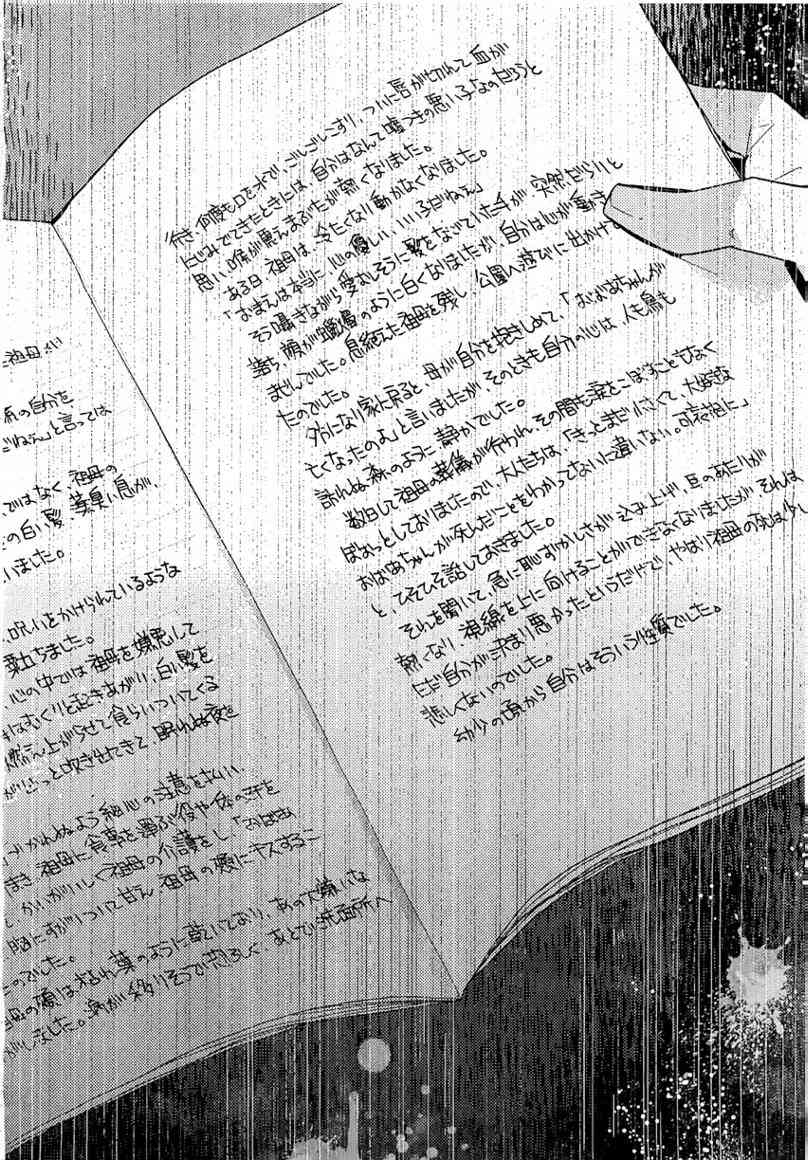 と祖母はい
の自分を
だねえ」と言っては
ではなく、祖母の
の白い髪、薬臭い息が、
いました。
、呪いをかけられているような
粟立ちました。
、心の中では祖母を嫌悪して
はむくりと起きあがり、白い髪を
燃え上がらせて食らいついてくる
がどっと吹きせれてきて、眠れぬ夜を
づかれぬよう細心の注意を払い、
まき、祖母に食事を運ぶ役や体の汗を
、かいがいしく祖母の介護をし、「おばあ
胸にすがりついて甘え、祖母の頬にキスするこ
のでした。
祖母の頬は枯れ葉のように乾いており、あの大嫌いな
がしました。病が移りそうで恐ろしく、あとで洗面所へ
行き、何度も口を水で、ごしごしこすり、ついに唇が切れて血が
にじみでてきたときには、自分はなんて嘘つきの悪い子なのだろうと
思い、喉が震えまぶたが熱くなりました。
ある日、祖母は、冷たくなり動かなくなりました。
「おまえは本当に、心の優しい、いい子だねえ」
そう囁きながら愛おしそうに髪をなでていた手が、突然だらりと
落ち、顔が蠟燭のように白くなりましたが、自分は心が動き
ませんでした。息絶えた祖母を残し、公園へ遊びに出かけて
たのでした。
夕方になり家に戻ると、母が自分を抱きしめて、「おばあちゃんが
亡くなったのよ」と言いましたが、そのときも自分の心は、人も鳥も
訪れぬ森のように静かでした。
数日して祖母の葬儀が行われ、その間も涙をこぼすこともなく
ぼおっとしておりましたので、大人たちは、「きっとまだ小さくて、大好きな
おばあちゃんが死んだことをわかってないに違いない。可哀想に」
と、ひそひそ話しておきました。
それを聞いて、急に恥ずかしさが込み上げ、耳のあたりが
熱くなり、視線を上に向けることができなくなりましたが、それは
ただ自分が決まり悪かったというだけで、やはり祖母の死は少し
悲しくないのでした。
幼少の頃から自分はそういう性質でした。